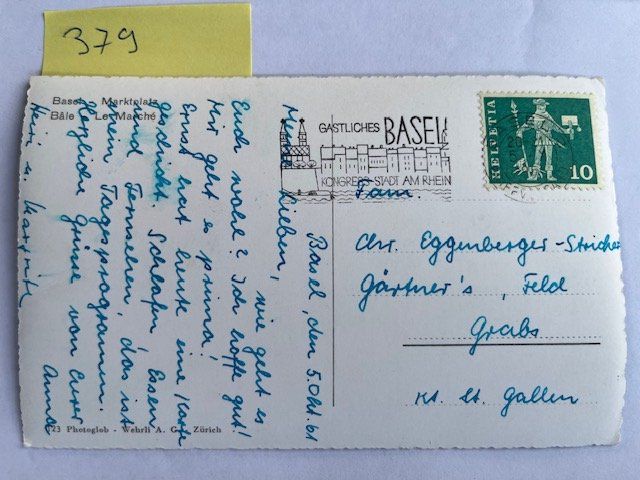 379
Basel Marktplatz
Bâle Le Marché
GASTLICHES BASEL
KONGRESS-STADT AM RHEIN
HELVETIA
10
Basel, den 5. Okt. 61
Meine Lieben,
wie geht es
Euch wohl? Ich hoffe gut!
Mir geht es prima!
Ernst hat heute eine Karte
geschickt. Schlafen, Essen
und Fernsehen, das ist
mein Tagsprogramm.
Herzliche Grüsse von Eurer
Anna
Fam.
Chr. Eggenberger-Stricker
Gärtner's, Feld
Grabs
Kt. St. Gallen
Photoglob - Wehrli A. G., Zürich